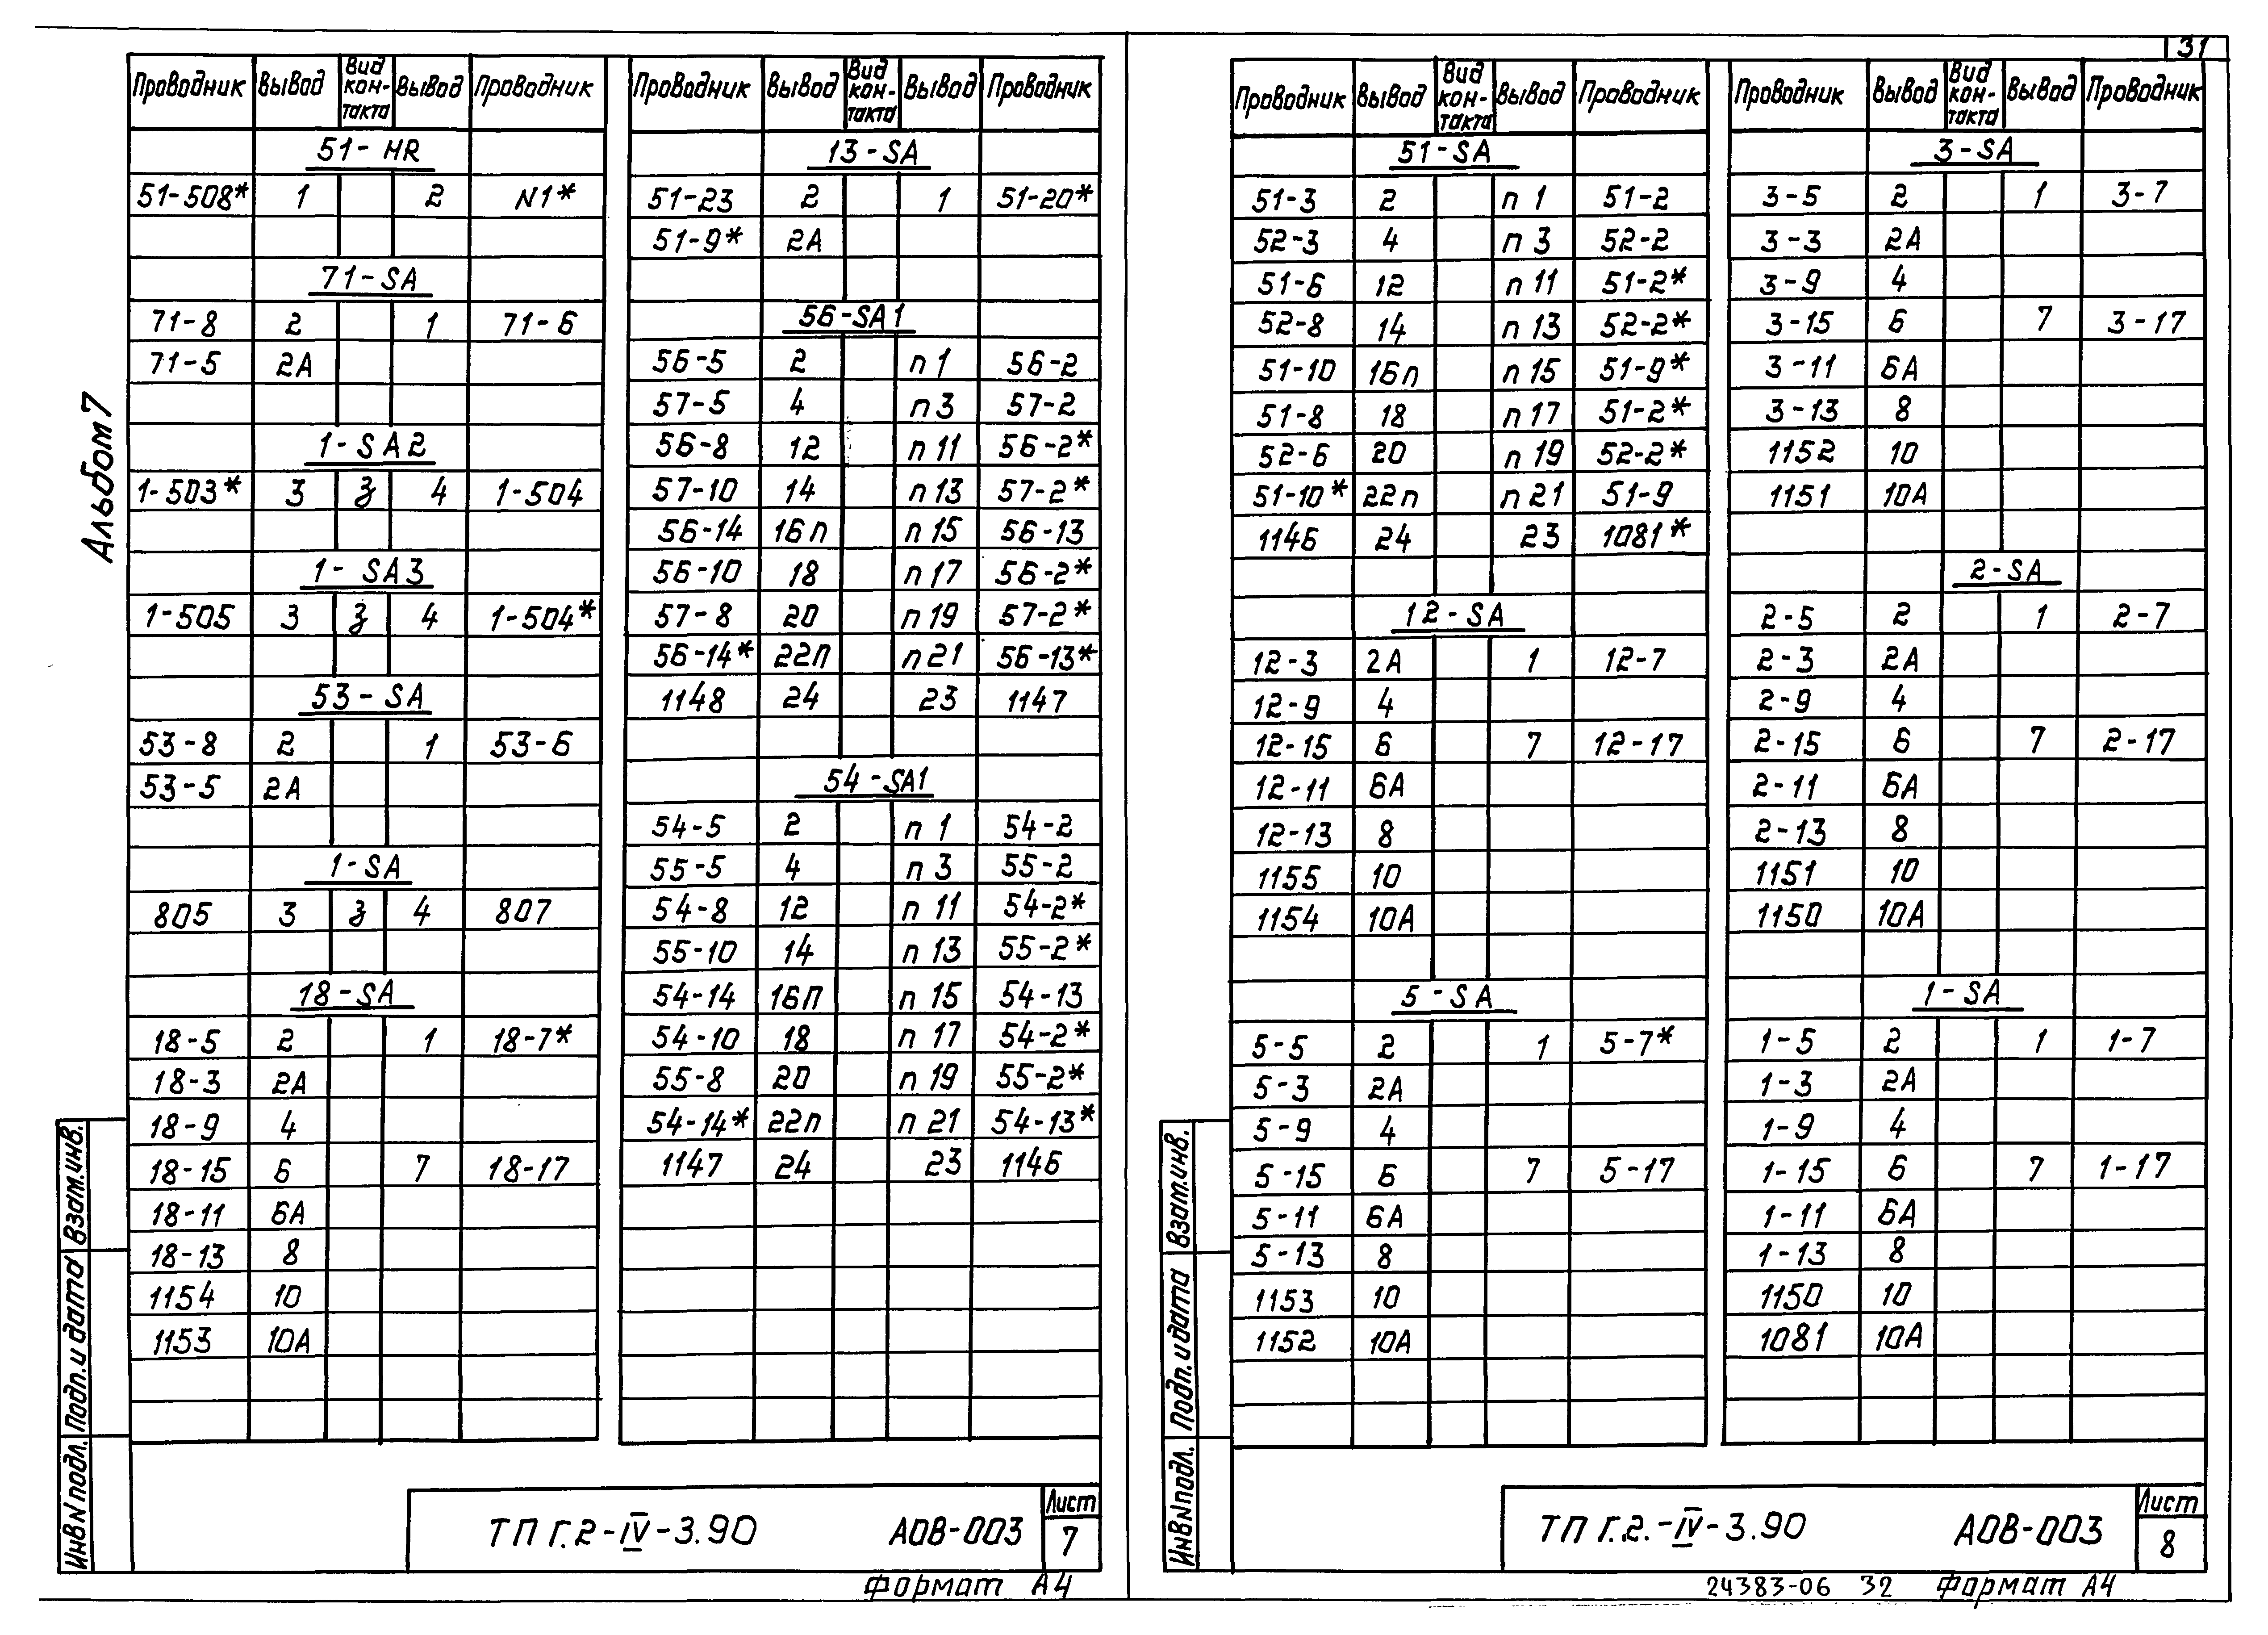 31
Альбом 7
Проводник Вывод Вид кон-такта Вывод Проводник
51-HR
51-508* 1 2 N1*
71-SA
71-8 2 1 71-6
71-5 2А
1-SA2
1-503* 3 з 4 1-504
1-SA3
1-505 3 з 4 1-504*
53-SA
53-8 2 1 53-6
53-5 2А
1-SA
805 3 з 4 807
18-SA
18-5 2 1 18-7*
18-3 2А
18-9 4
18-15 6 7 18-17
18-11 6А
18-13 8
1154 10
1153 10А
Проводник Вывод Вид кон-такта Вывод Проводник
13-SA
51-23 2 1 51-20*
51-9* 2А
56-SA1
56-5 2 п1 56-2
57-5 4 п3 57-2
56-8 12 п11 56-2*
57-10 14 п13 57-2*
56-14 16п п15 56-13
56-10 18 п17 56-2*
57-8 20 п19 57-2*
56-14* 22п п21 56-13*
1148 24 23 1147
54-SA1
54-5 2 п1 54-2
55-5 4 п3 55-2
54-8 12 п11 54-2*
55-10 14 п13 55-2*
54-14 16п п15 54-13
54-10 18 п17 54-2*
55-8 20 п19 55-2*
54-14* 22п п21 54-13*
1147 24 23 1146
Инв N подл. Подп. и дата Взам. инв.
ТП Г.2-IV-3.90 АОВ-003 Лист 7
Формат А4
Проводник Вывод Вид кон-такта Вывод Проводник
51-SA
51-3 2 п1 51-2
52-3 4 п3 52-2
51-6 12 п11 51-2*
52-8 14 п13 52-2*
51-10 16п п15 51-9*
51-8 18 п17 51-2*
52-6 20 п19 52-2*
51-10* 22п п21 51-9
1146 24 23 1081*
12-SA
12-3 2А 1 12-7
12-9 4
12-15 6 7 12-17
12-11 6А
12-13 8
1155 10
1154 10А
5-SA
5-5 2 1 5-7*
5-3 2А
5-9 4
5-15 6 7 5-17
5-11 6А
5-13 8
1153 10
1152 10А
Проводник Вывод Вид кон-такта Вывод Проводник
3-SA
3-5 2 1 3-7
3-3 2А
3-9 4
3-15 6 7 3-17
3-11 6А
3-13 8
1152 10
1151 10А
2-SA
2-5 2 1 2-7
2-3 2А
2-9 4
2-15 6 7 2-17
2-11 6А
2-13 8
1151 10
1150 10А
1-SA
1-5 2 1 1-7
1-3 2А
1-9 4
1-15 6 7 1-17
1-11 6А
1-13 8
1150 10
1081 10А
Инв N подл. Подп. и дата Взам. инв.
ТП Г.2.-IV-3.90 АОВ-003 Лист 8
24383-06 32 Формат А4